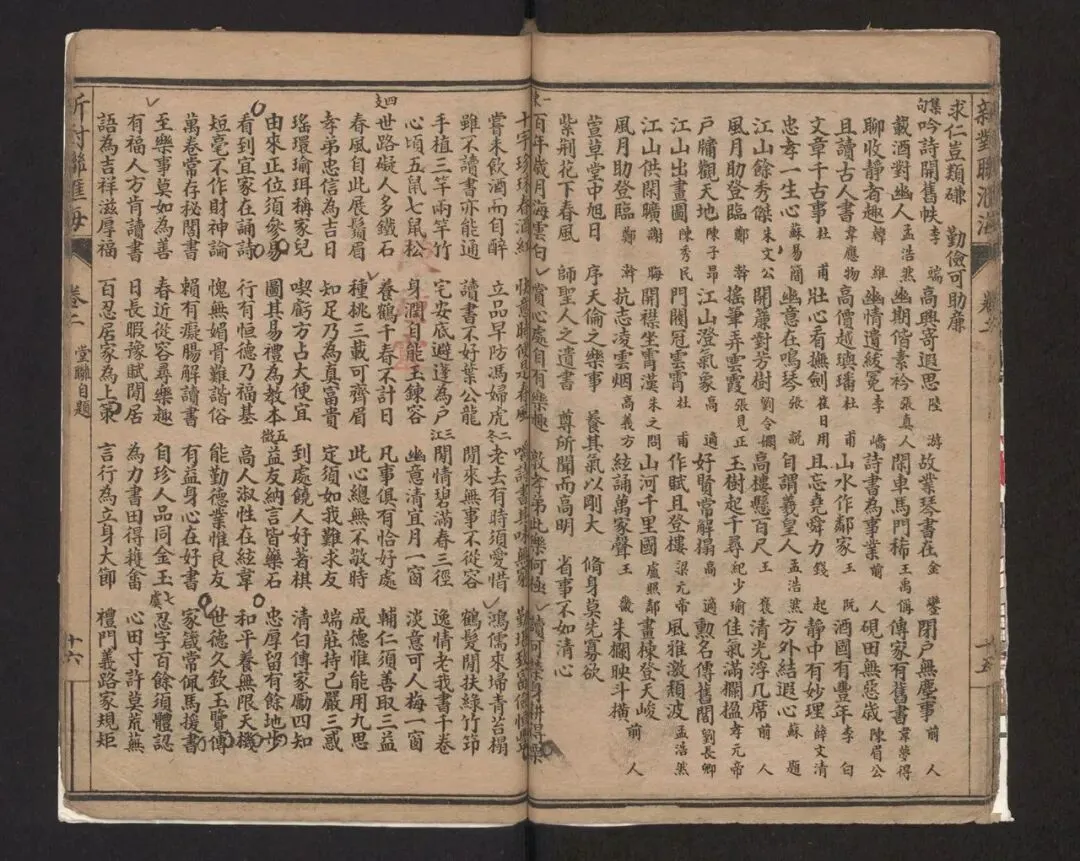 新對聯滙海 卷 十五
求仁豈類磏 勤儉可助廉
集句 吟詩開舊帙李端 高興寄遐思陸游 故業琴書在金鑾 閉戶無塵事前人
載酒對幽人孟浩然 幽期偕素衿張真人 閑車馬門稀王禹偁 傳家有舊書韋夢得
聊收靜者趣韓維 幽情遺紱冕李嶠 詩書為事業前人 硯田無惡歲陳眉公
且讀古人書韋應物 高價越璵璠杜甫 山水作鄰家王阮 酒國有豐年李白
文章千古事杜甫 壯心看撫劍崔日用 且忘堯舜力錢起 靜中有妙理薛文清
忠孝一生心蘇易簡 幽意在鳴琴張說 自謂羲皇人孟浩然 方外結遐心蘇題
江山餘秀傑朱文公 開簾對芳樹劉令嫻 高樓懸百尺王褒 清光浮几席前人
風月助登臨鄭幹 搖筆弄雲霞張見正 玉樹起千尋紀少瑜 佳氣滿闌楹孝元帝
戶牖觀天地陳子昂 江山澄氣象高適 好賢當解搨高適 勳名傳舊閣劉長卿
江山出畫圖陳秀民 門閥冠雲霄杜甫 作賦且登樓梁元帝 風雅激頹波孟浩然
江山供閑曠謝晦 開襟坐霄漢朱之問 山河千里國盧照鄰 畫棟登天峻
風月助登臨鄭幹 抗志凌雲烟高義方 絃誦萬家聲王畿 朱攔映斗橫前人
萱草堂中旭日 序天倫之樂事 養其氣以剛大 脩身莫先寡欲
紫荆花下春風 師聖人之遺書 尊所聞而高明 省事不如清心
一東 百年歲月海雲白 賞心處自有樂趣 敦孝弟此樂何極
嘗未飲酒而自醉 立品早防馮婦虎 二冬 老去有時須愛惜 鴻儒來埽青苔榻
雖不讀書亦能通 讀書不好葉公龍 閒來無事不從容 鶴髮閒扶綠竹筇
手植三竿兩竿竹 宅安底避逢為戶 三江 閒情碧滿春三徑 逸情老我書千卷
心頃五鬣七鬣松 身潤自能玉鍊容 幽意清宜月一窗 淡意可人梅一窗
四支 世路礙人多鐵石 養鶴千春不計日 凡事俱有恰好處 輔仁須善取三益
春風自此展鬚眉 種桃三載可齊眉 此心總無不敬時 成德惟能用九思
孝弟忠信為吉日 知足乃為真富貴 定須如我難求友 端莊持己嚴三惑
瑤環瑜珥稱家兒 喫虧方占大便宜 到處饒人好著棋 清白傳家勵四知
由來正位須參易 圖其易禮為教本 五微 益友納言皆藥石 忠厚留有餘地步
看到宜家在誦詩 行有恒德乃福基 高人淑性在絃韋 和平養無限天機
短毫不作財神論 愧無媚骨難諧俗 能勤德業惟良友 世德久欽玉覽傳
萬卷常存秘閣書 賴有癡腸解讀書 有益身心在好書 家箴當佩馬援書
至樂事莫如為善 春近從容尋樂趣 自珍人品同金玉 七虞 忍字百餘須體認
有福人方肯讀書 日長暇豫賦閒居 為力書田得穫畬 心田寸許莫荒蕪
語為吉祥滋厚福 百忍居家為上策 言行為立身大節 禮門義路家規矩
新對聯匯海 卷二 堂聯自題 十六